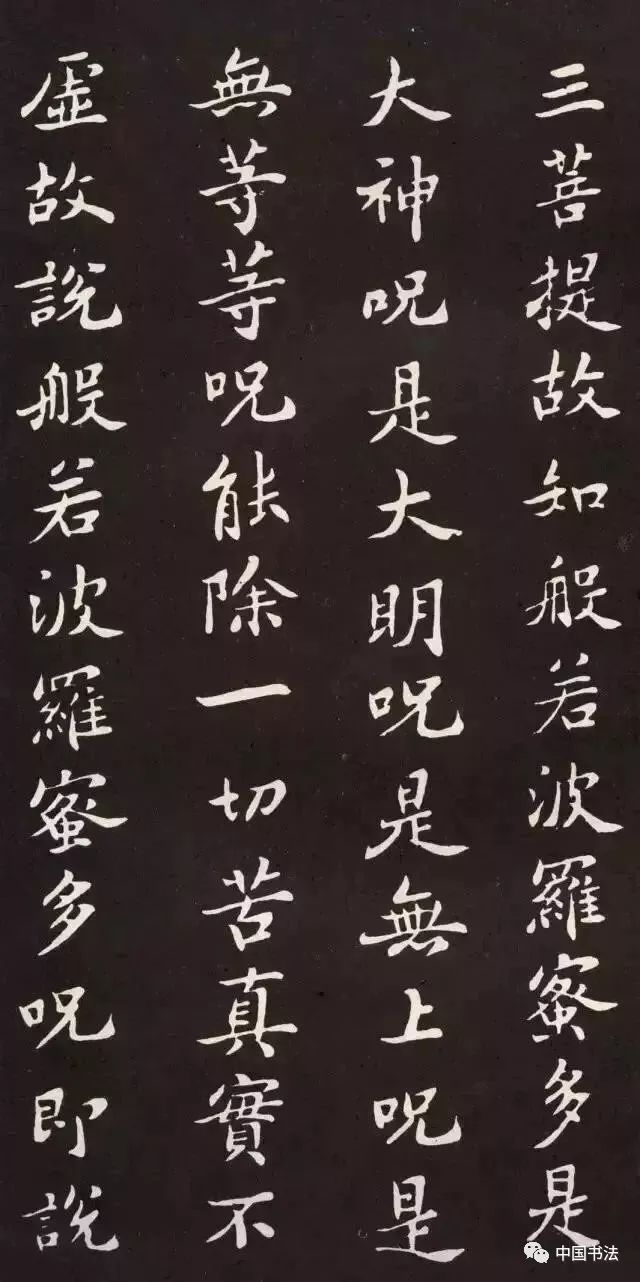 三菩提故知般若波羅蜜多是
大神呪是大明呪是無上呪是
無等等呪能除一切苦真實不
虛故說般若波羅蜜多呪即說
中国书法